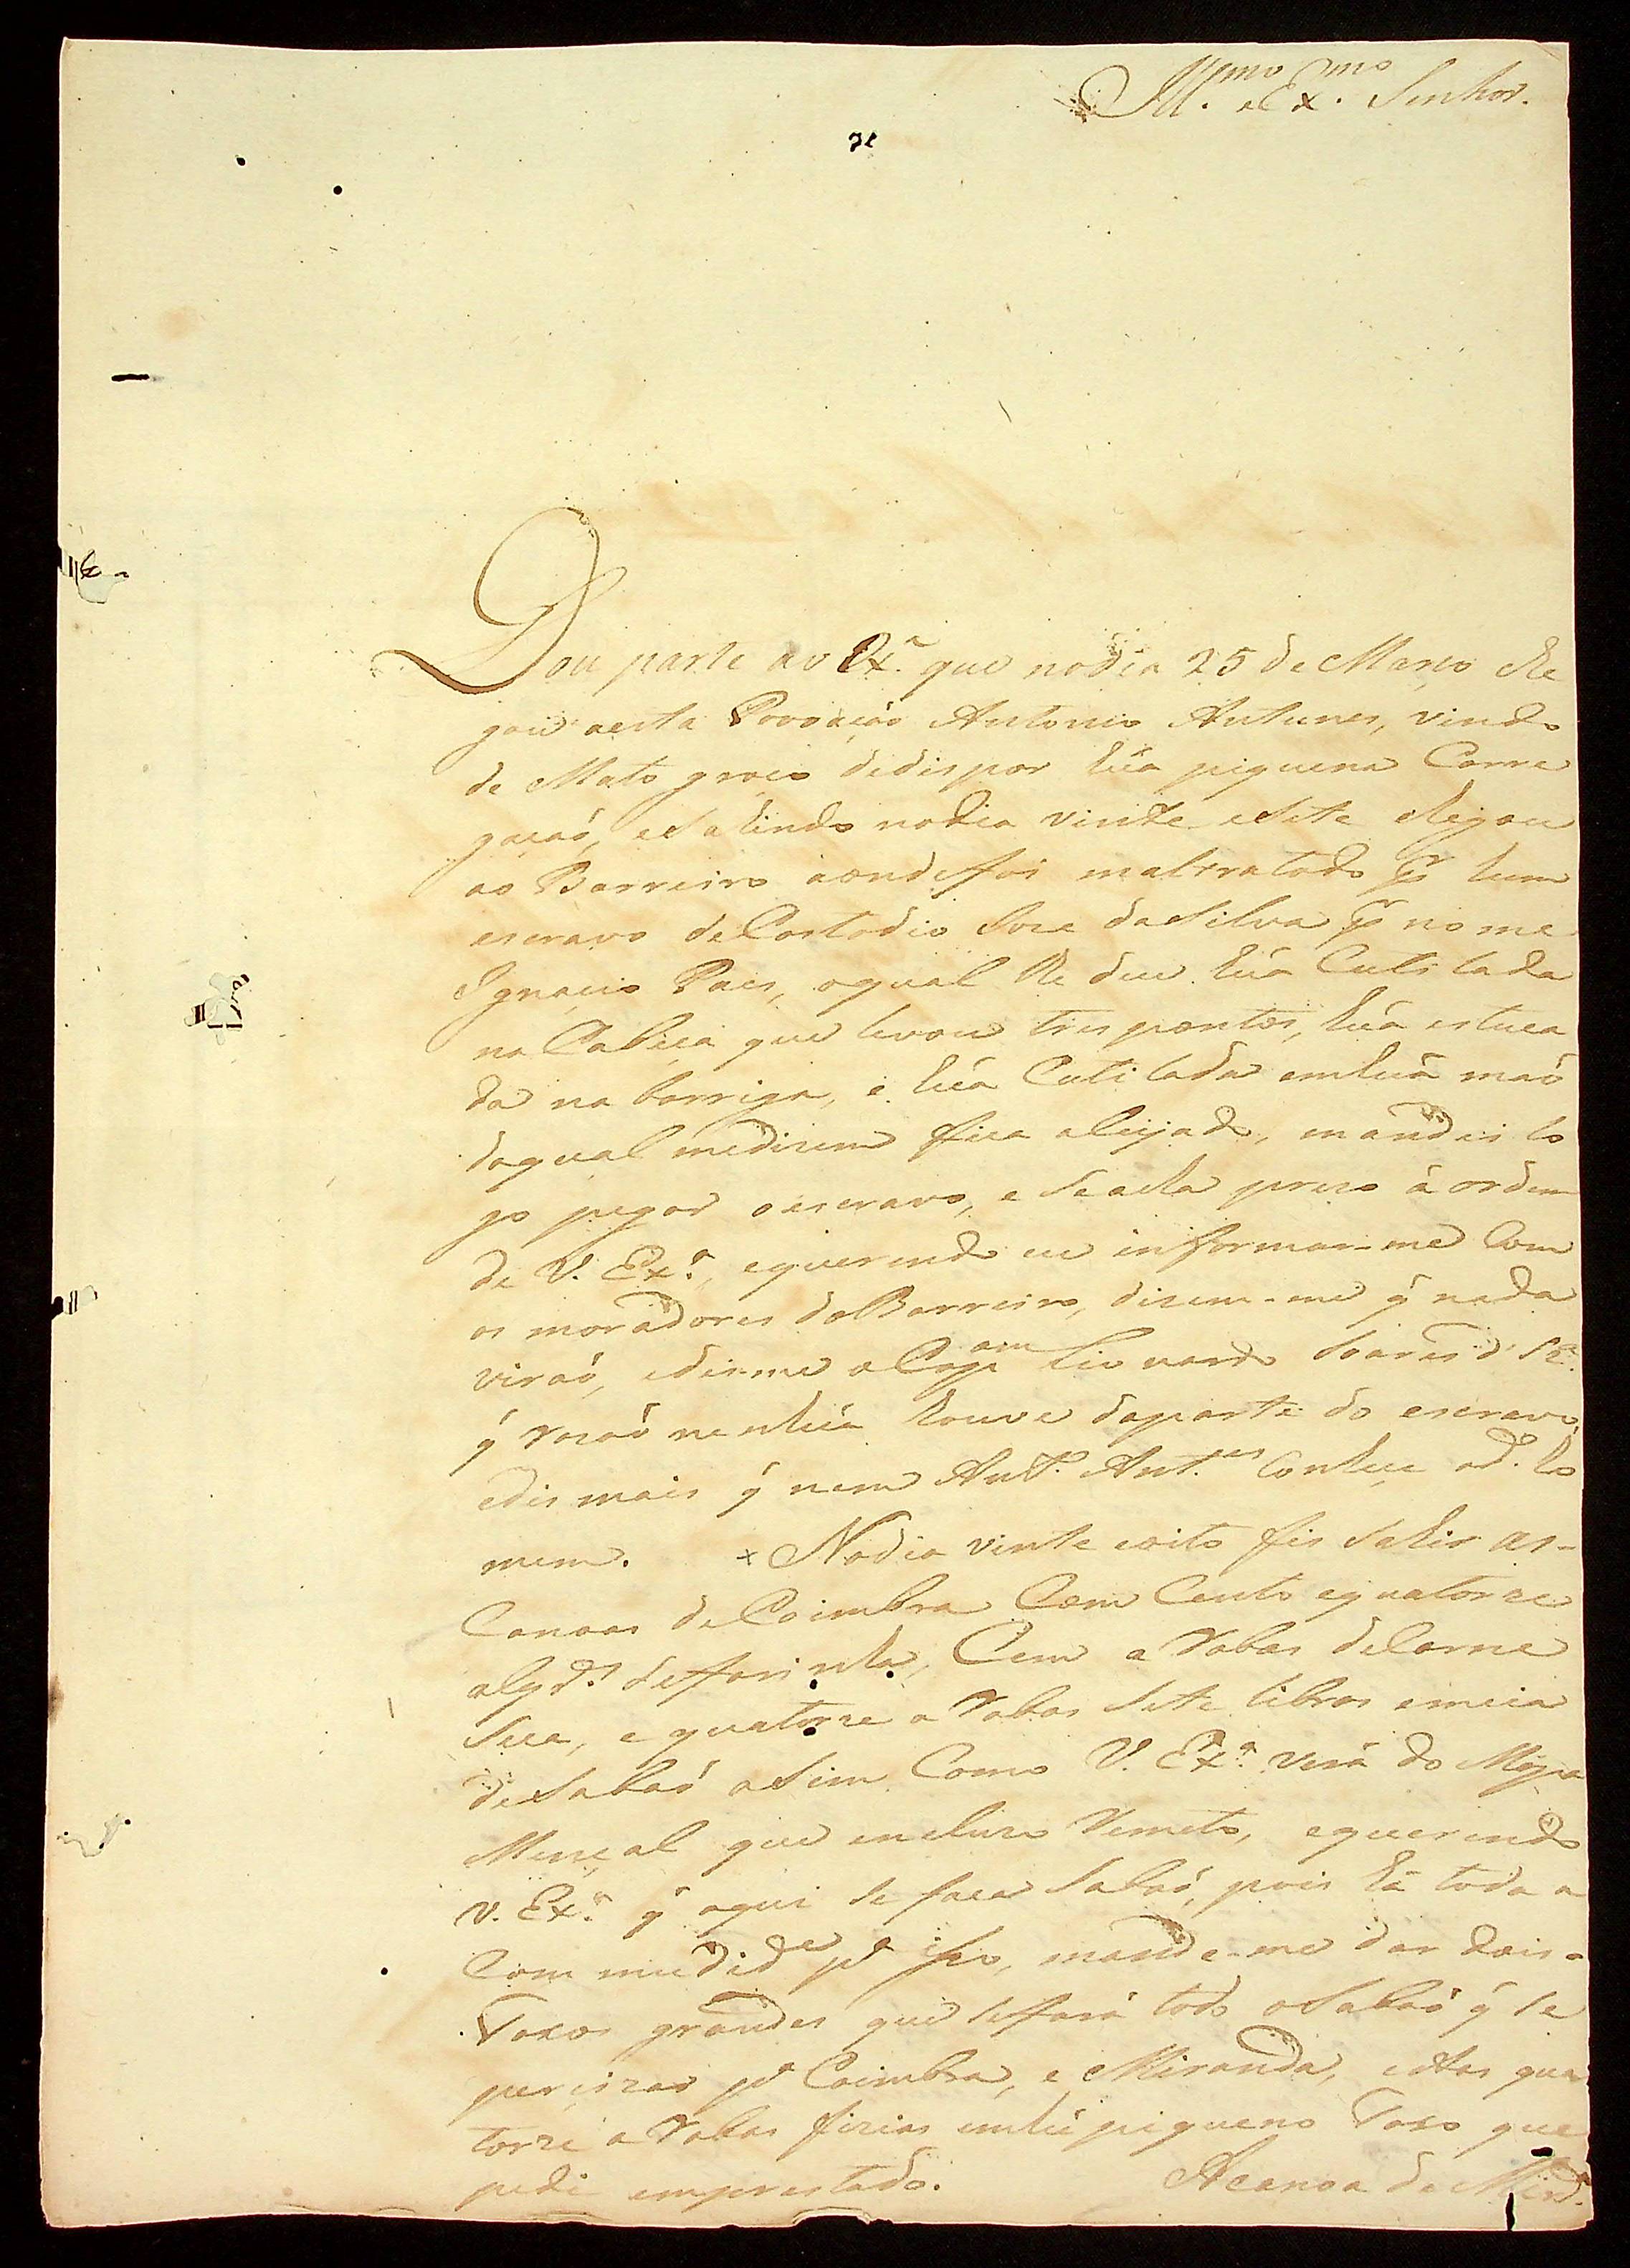 Ill.mo e Ex.mo Senhor.
Dou parte a V Ex.ª que nodia 25 de Março che
gou aesta Povoação Antonio Antunes, vindo
de Mato groço dedispor hũa piquena Carre
gaçaõ, esahindo nodia vinte esete chegou
ao Barreiro aondefoi maltratado pr hum
escravo deCostodio Joze daSilva pr nome
Ignacio Paes, oqual lhe deu hũa Cutilada
na Cabeça que levou tres pontos, hũa estuca
da na barriga, e hũa Cutilada emhũa maõ
daqual medizem fica aleijado, mandei lo
go pegar oescravo, e seacha prezo á ordem
de V. Ex.ª, equerendo eu informar-me Com
os moradores doBarreiro, dizem-me q̃ nada
viraõ, edis-me oCapam Leonardo Soares d' Sz.ª
q̃ razaõ nenhũa houve daparte do escravo,
edis mais q̃ nem Ant.º Ant.es Conheçe od.º ho
mem. x Nodia vinte eoito fis sahir as-
Canoas deCoimbra Com Cento equatorze
alqr.s defarinha, Cem aRobas deCarne
seca, equatorze aRobas sete libras emeia
deSabaõ asim Como V. Ex.ª verá do Mapa
Mençal que incluzo Remeto, equerendo
V. Ex.ª q̃ aqui se faca Sabaõ, pois há toda a
Commudide pª iso, mande-me dar dois-
Taxos grandes que sefará todo oSabaõ q̃ se
percizar pª Coimbra, e Miranda, eAs qua
torze aRobas fizias emhũ piqueno Taxo que
pedi emprestado. Acanoa de Mirdª